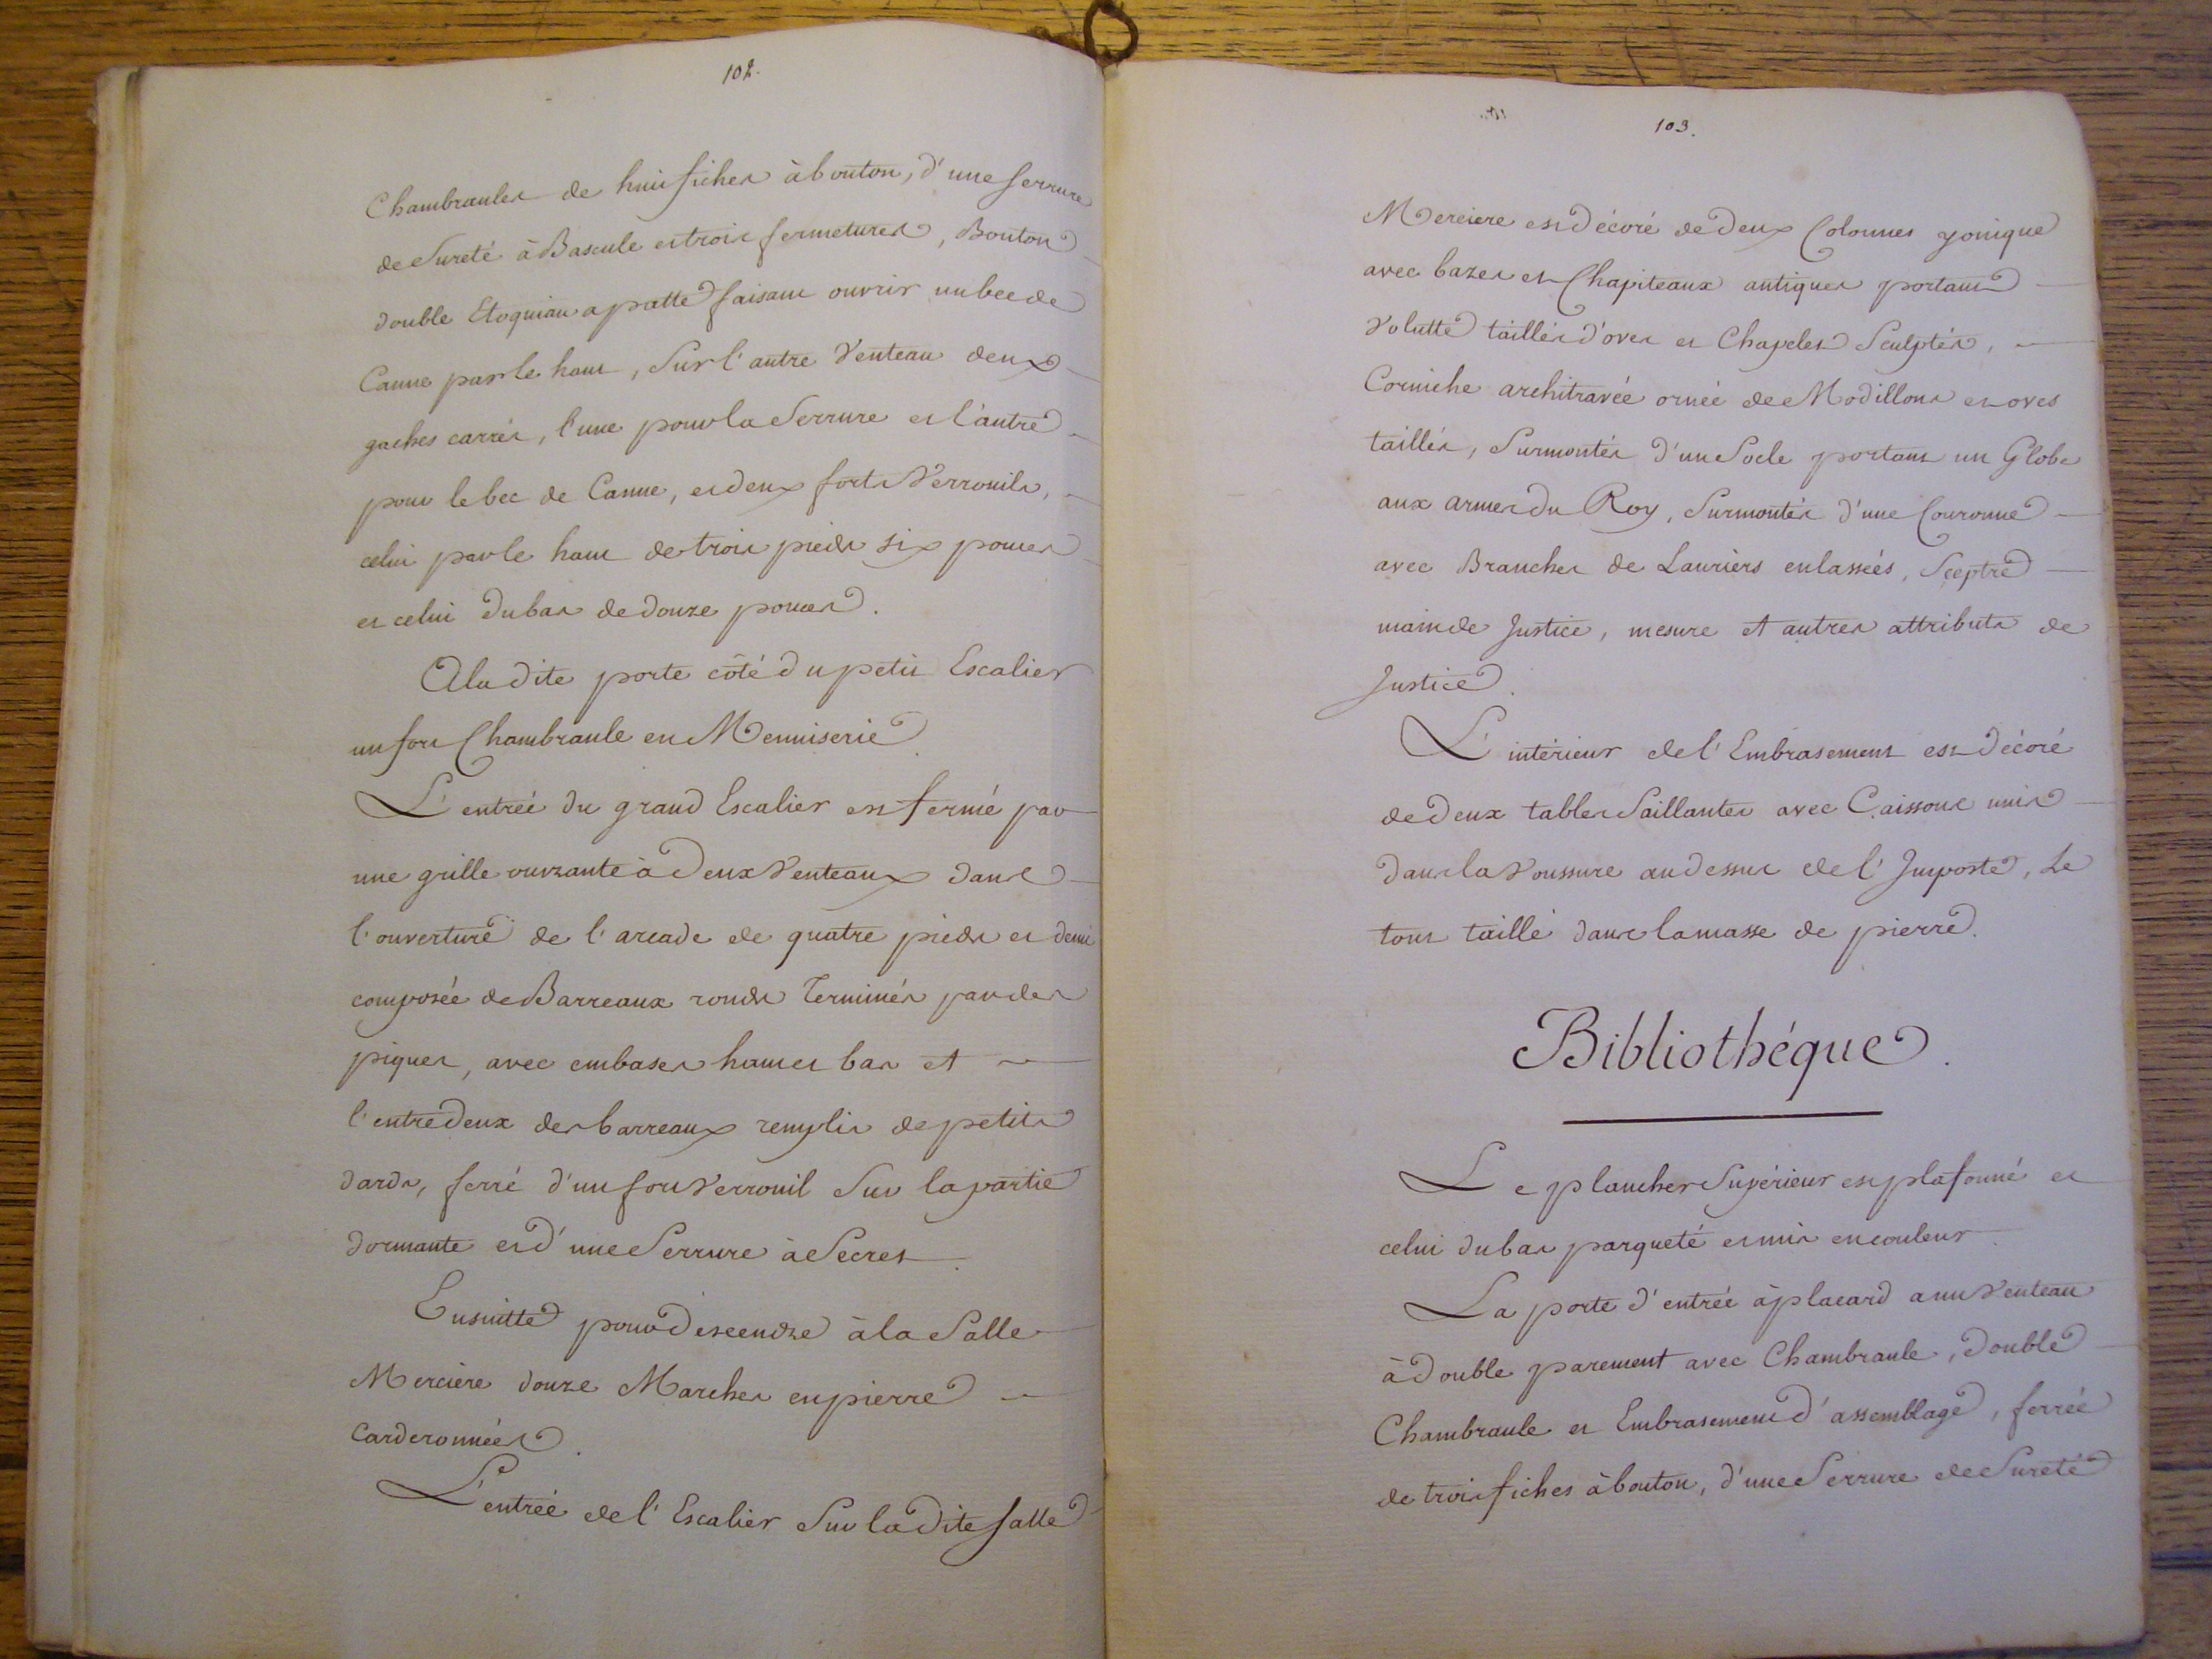 102.
Chambranles de huit fiches à bouton, d'une serrure
de Sureté à Bascule et trois fermetures, Bouton
double Etoquiau a patte faisant ouvrir un bec de
Canne par le haut, Sur l'autre Venteau deux
gaches carrés, l'une pour la Serrure et l'autre
pour le bec de Canne, et deux forts Verrouils,
celui par le haut de trois pieds six pouces
et celui du bas de douze pouces.
A la dite porte côté du petit Escalier
un fort Chambranle en Menuiserie.
L'entreé du grand Escalier est fermé par
une grille ouvrante à deux Venteaux dans
l'ouverture de l'arcade de quatre pieds et demi
composée de Barreaux ronds Terminés par des
piques, avec embases haut et bas et
l'entredeux des barreaux remplis de petits
dards, ferré d'un fort Verrouil Sur la partie
dormante et d'une Serrure à Secret.
Ensuitte pour descendre à la Salle
Merciere douze Marches en pierre
Carderonnées.
L'entreé de l'Escalier Sur la dite salle
103.
Merciere est décoré de deux Colonnes yonique
avec bazes et Chapiteaux antiques portant
Volutte taillés d'oves et Chapelet Sculptés,
Corniche architravée ornée de Modillons et oves
taillés, Surmontés d'un Socle portant un Globe
aux armes du Roy, Surmontés d'une Couronne
avec Branches de Lauriers enlassées, Sceptre
main de Justice, mesure et autres attributs de
Justice.
L'intérieur de l'Embrasement est décoré
de deux tables Saillantes avec Caissons unis
dans la Voussure au dessus de l'Imposte, Le
tout taillé dans la masse de pierre.
Bibliothéque.
Le plancher Supérieur est plafonné et
celui du bas parqueté et mis en couleur.
La porte d'entrée à placard a un Venteau
à double parement avec Chambranle, double
Chambranle et Embrasement d'assemblage, ferrée
de trois fiches à bouton, d'une Serrure de Sureté